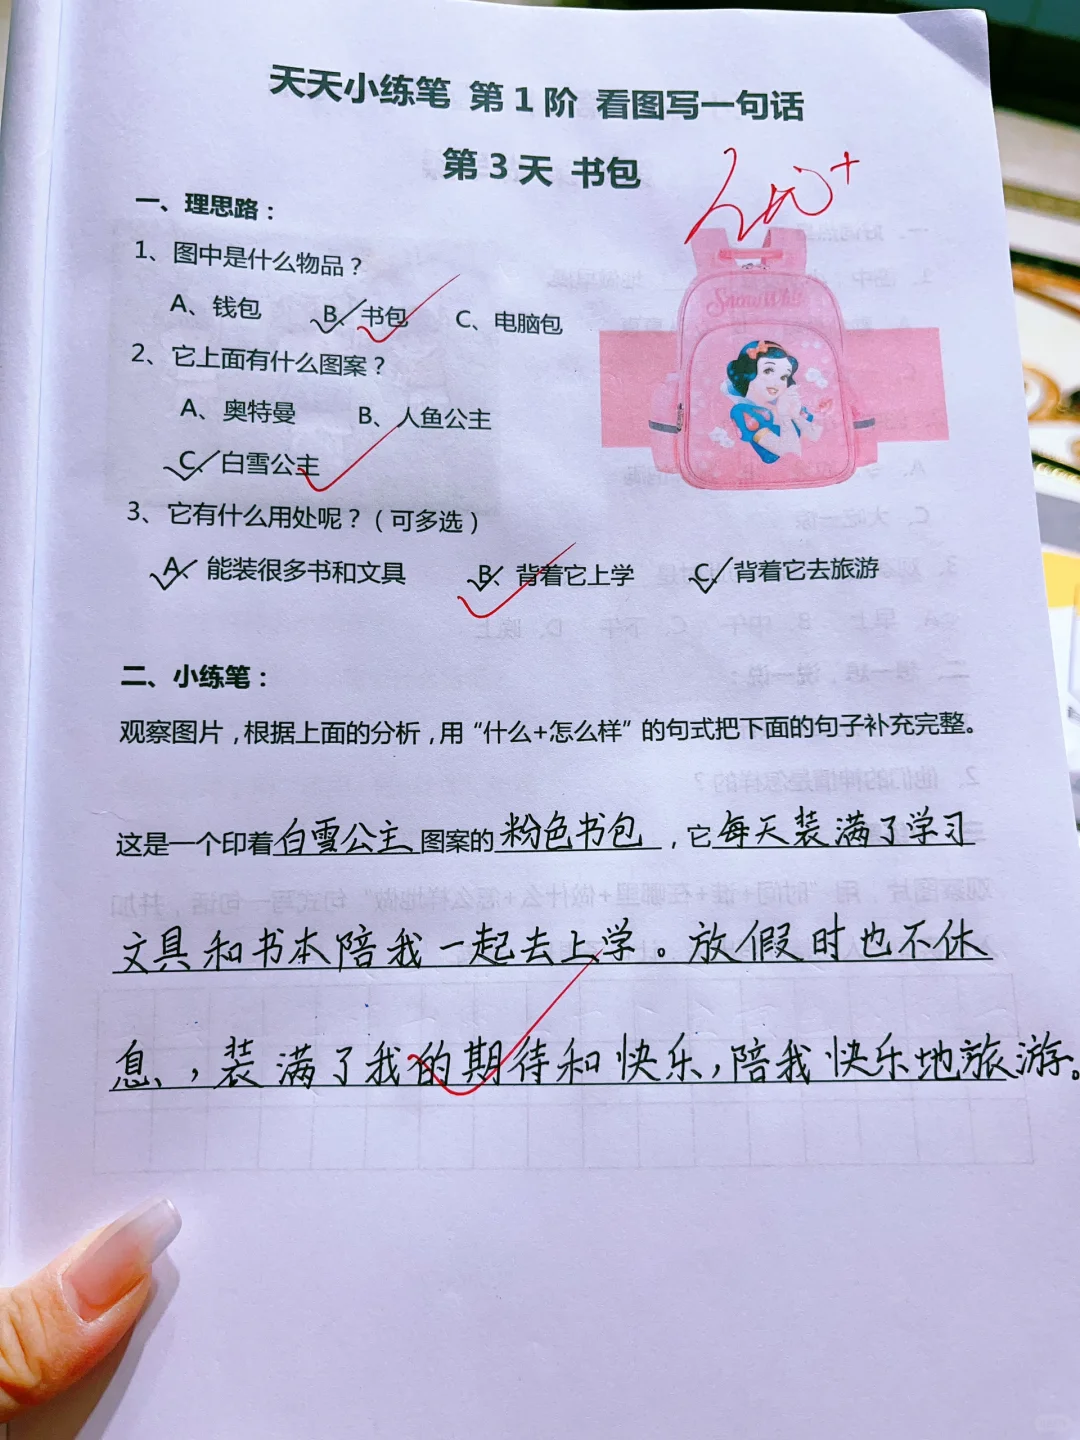 天天小练笔 第1阶 看图写一句话
第3天 书包
优+
一、理思路：
1、图中是什么物品？
A、钱包 B、书包 C、电脑包
Snow White
2、它上面有什么图案？
A、奥特曼 B、人鱼公主
C、白雪公主
3、它有什么用处呢？（可多选）
A、能装很多书和文具 B、背着它上学 C、背着它去旅游
二、小练笔：
观察图片，根据上面的分析，用“什么+怎么样”的句式把下面的句子补充完整。
这是一个印着白雪公主图案的粉色书包，它每天装满了学习
文具和书本陪我一起去上学。放假时也不休
息、，装满了我的期待和快乐，陪我快乐地旅游。